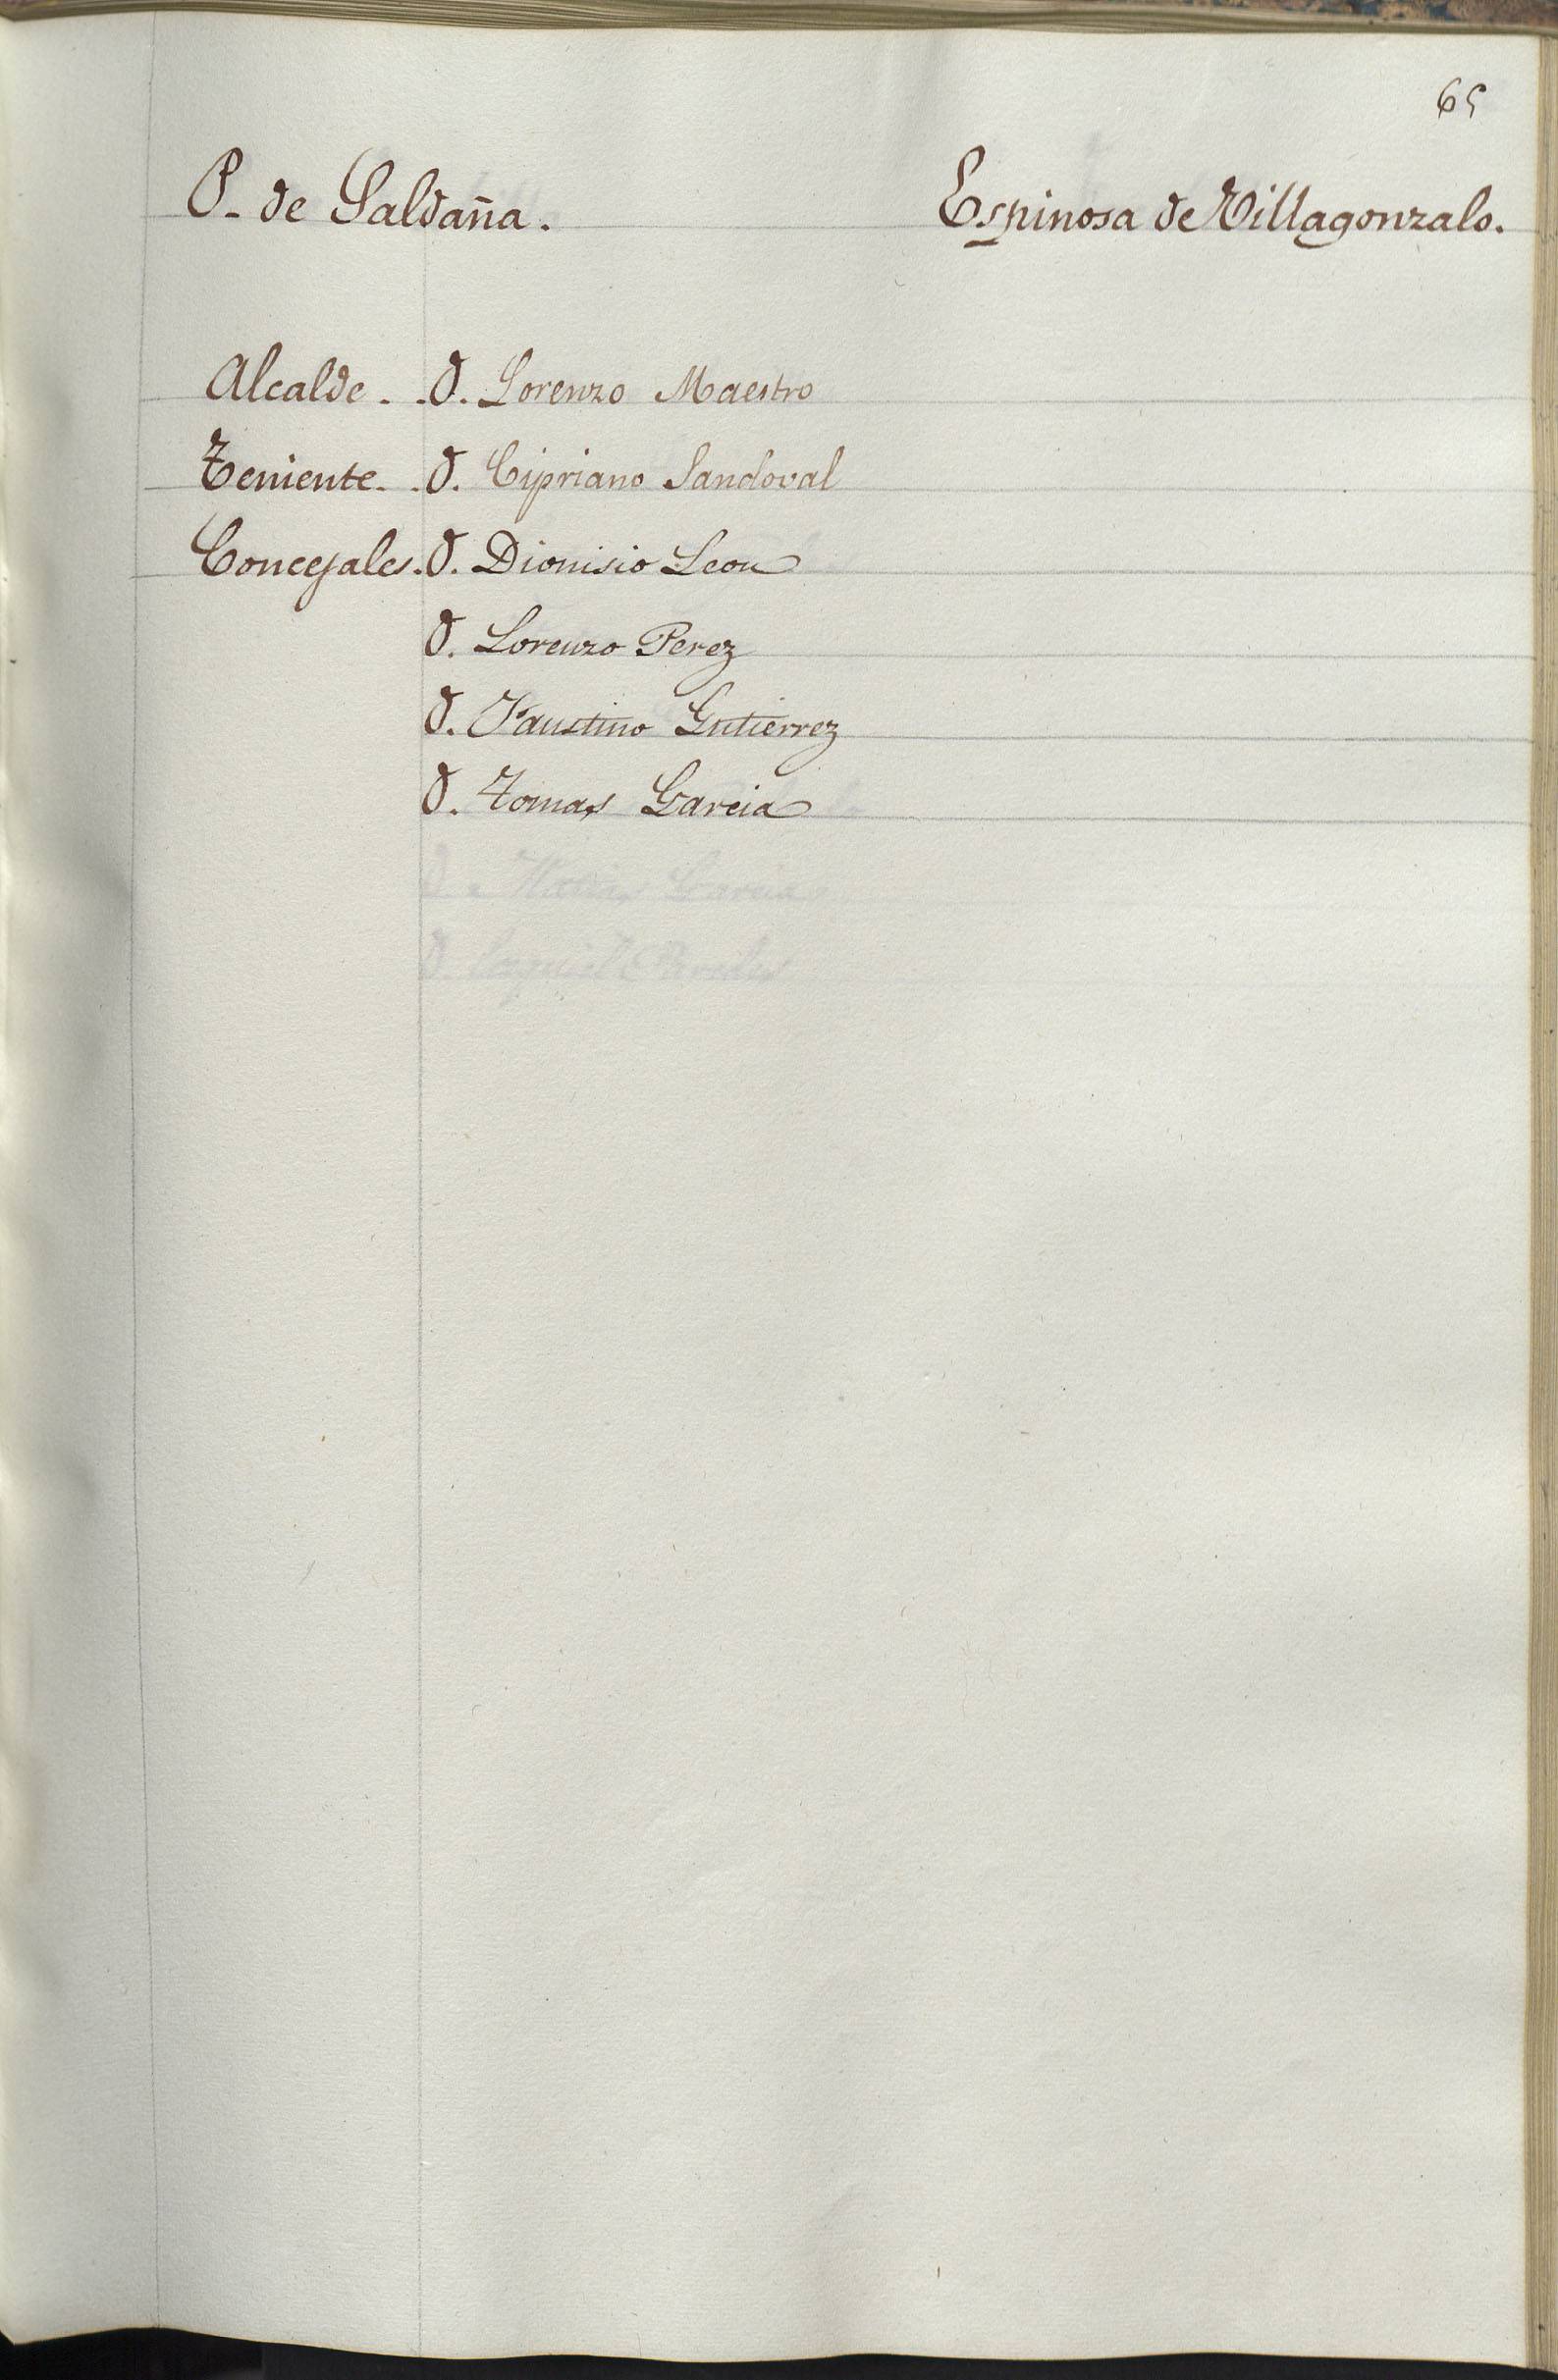 65
P. de Saldaña. Espinosa de Villagonzalo.
Alcalde - . D. Lorenzo Maestro
Teniente - . D. Cipriano Sandoval
Concejales . D. Dionisio Leon
D. Lorenzo Perez
D. Faustino Gutierrez
D. Tomas Garcia